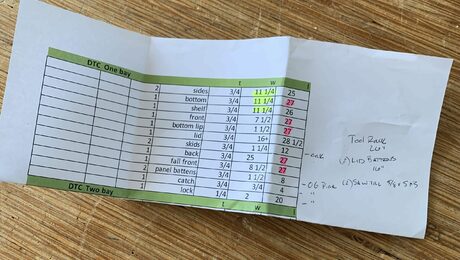 DTC One bay t w l
2 sides 3/4 11 1/4 25
1 bottom 3/4 11 1/4 27
1 shelf 3/4 11 1/4 26
1 front 3/4 7 1/2 27
1 bottom lip 3/4 1 1/2 27
1 lid 3/4 16+ 28 1/2
2 skids 3/4 1 1/4 12
1 back 3/4 25 27
1 fall front 3/4 8 1/2 27
2 panel battens 3/4 1 1/2 8
1 catch 3/4 3/4 4
1 lock 1/4 2 20
DTC Two bay
Tool Rack
(2) LID BATTENS
16"
- OAK
- OG PINE
- "
- "